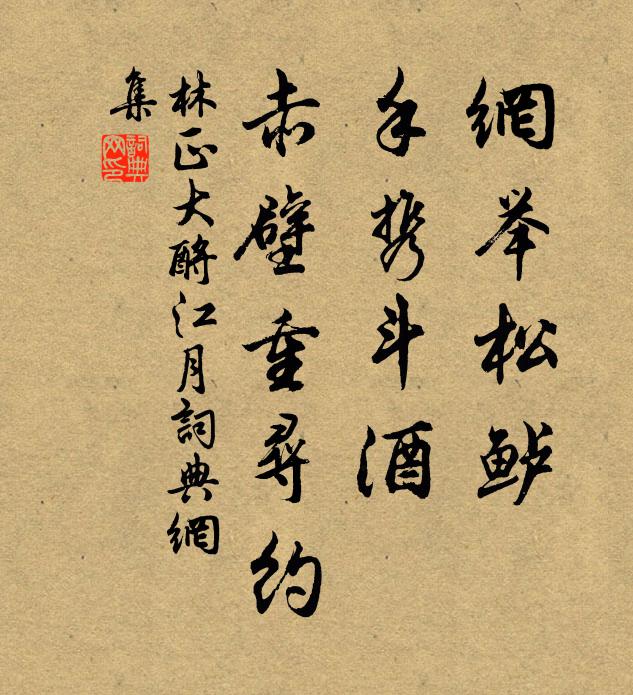 網举松鲈
手携斗酒
赤壁重尋约
林正大酹江月詞典網
集
詞典
网印